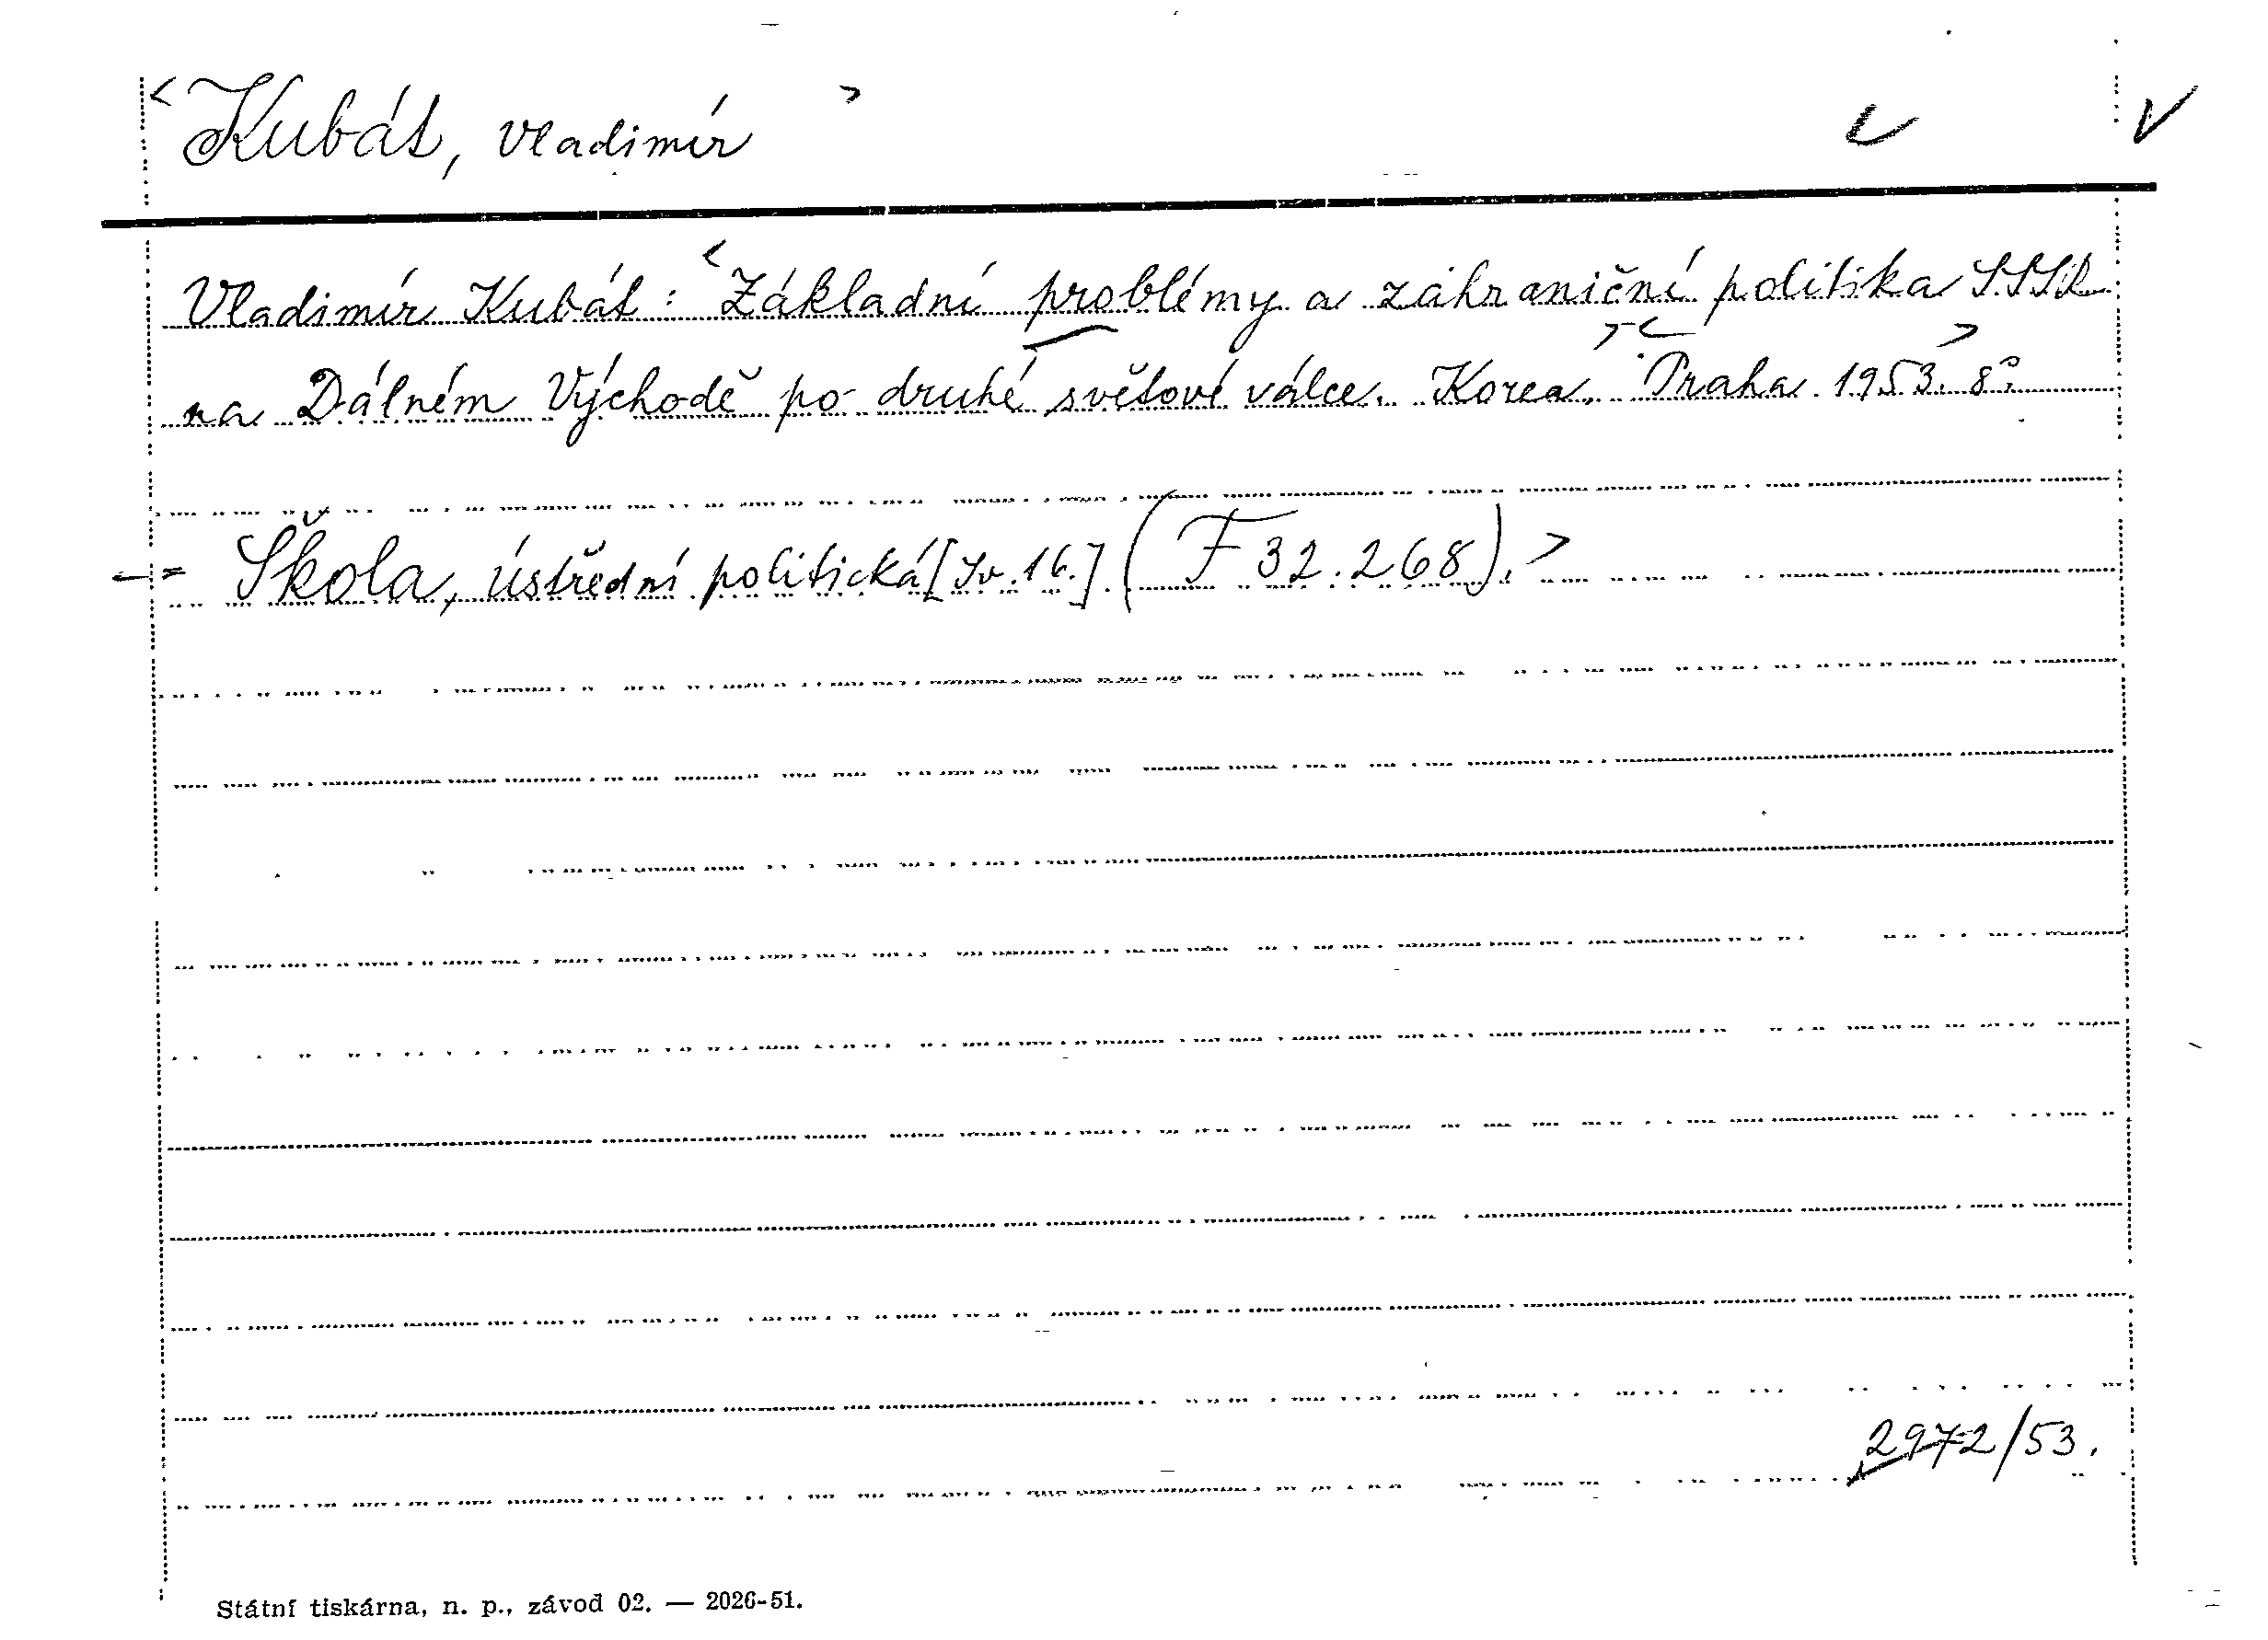 < Kubát, Vladimír >
Vladimír Kubát: < Základní problémy a zahraniční politika SSSR
na Dálném Východě po druhé světové válce. Korea. > < Praha 1953. > 8°.
= Škola, ústřední politická [Sv. 16.] (F 32.268). >
2972/53.
Státní tiskárna, n. p., závod 02. — 2026-51.